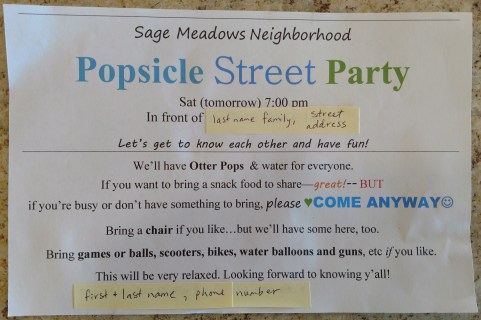 Sage Meadows Neighborhood
Popsicle Street Party
Sat (tomorrow) 7:00 pm
In front of last name family, street address
Let's get to know each other and have fun!
We'll have Otter Pops & water for everyone.
If you want to bring a snack food to share—great!-- BUT
if you're busy or don't have something to bring, please ♥COME ANYWAY☺
Bring a chair if you like…but we'll have some here, too.
Bring games or balls, scooters, bikes, water balloons and guns, etc if you like.
This will be very relaxed. Looking forward to knowing y'all!
first + last name, phone number